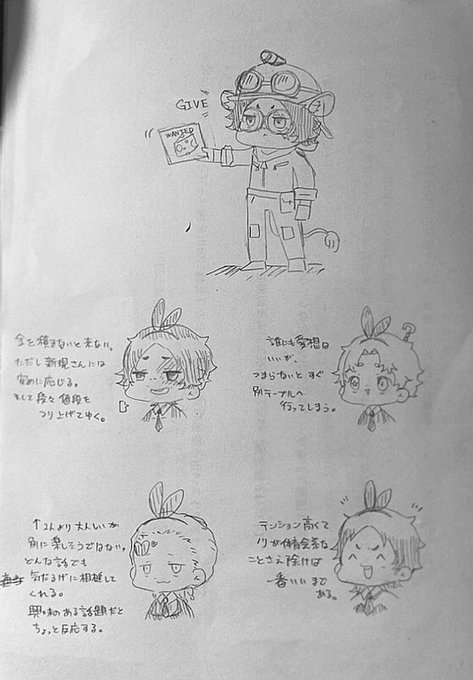 GIVE
WANTED
金を積まないと来ない。
ただし新規さんには
安めに応じる。
そして段々値段を
つり上げてゆく。
誰にも愛想は
いいが、
つまらないとすぐ
別テーブルへ
行ってしまう。
?
↑2人より大人しいが
別に楽しそうではない。
どんな話でも
気だるげに相槌して
くれる。
興味のある話題だと
ちょっと反応する。
テンション高くて
ノリが体育会系な
ことさえ除けば
一番いいまで
ある。